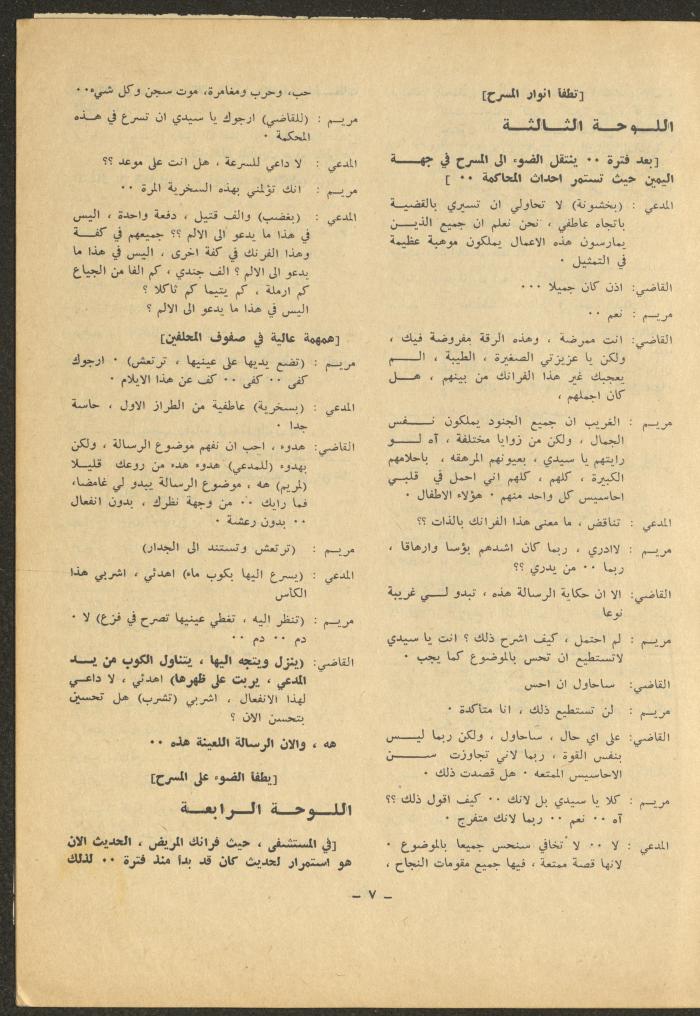 [تطفأ انوار المسرح]
اللـوحـة الثـالثـة
[بعد فترة ٠٠ ينتقل الضوء الى المسرح في جهــة
اليمين حيث تستمر احداث المحاكمة ٠٠ ]
المدعي : (بخشونة) لا تحاولي ان تسيري بالقضيـة
باتجاه عاطفي ، نحن نعلم ان جميع الذيـن
يمارسون هذه الاعمال يملكون موهبة عظيمة
في التمثيل ٠
القاضي: اذن كان جميلا ٠٠٠
مريـم : نعم ٠٠
القاضي: انت ممرضة ، وهذه الرقة مفروضة فيك ،
ولكن يا عزيزتي الصغيرة ، الطيبة ، الــم
يعجبك غير هذا الفرانك من بينهم ، هــل
كان اجملهم ،
مريـم : الغريب ان جميع الجنود يملكون نـفس
الجمال ، ولكن من زوايا مختلفة ، آه لــو
رايتهم يا سيدي ، بعيونهم المرهقه ، باحلامهم
الكبيرة ، كلهم ، كلهم اني احمل في قلبـي
احاسيس كل واحد منهم ٠ هؤلاء الاطفال ٠
المدعي : تناقض ، ما معنى هذا الفرانك بالذات ؟؟
مريـم : لاادري ، ربما كان اشدهم بؤسا وارهاقا ،
ربما ٠٠ من يدري ؟؟
القاضي: الا ان حكاية الرسالة هذه ، تبدو لـي غريبة
نوعا
مريـم : لم احتمل ، كيف اشرح ذلك ؟ انت يا سيدي
لاتستطيع ان تحس بالموضوع كما يجب ٠
القاضي: ساحاول ان احس
مريـم : لن تستطيع ذلك ، انا متأكدة ٠
القاضي: على اي حال ، ساحاول ، ولكن ربما ليـس
بنفس القوة ، ربما لاني تجاوزت ســن
الاحاسيس الممتعه ٠ هل قصدت ذلك ٠
مريـم : كلا يا سيدي بل لانك ٠٠ كيف اقول ذلك ؟؟
آه ٠٠ نعم ٠٠ ربما لانك متفرج ٠
المدعي : لا ٠٠ لا تخافي سنحس جميعا بالموضوع ٠
لانها قصة ممتعة ، فيها جميع مقومات النجاح ،
حب، وحرب ومغامرة، موت سجن وكل شيء٠٠
مريـم : (للقاضي) ارجوك يا سيدي ان تسرع في هـذه
المحكمة ٠
المدعي : لا داعي للسرعة ، هل انت على موعد ؟؟
مريـم : انك تؤلمني بهذه السخرية المرة ٠٠
المدعي : (بغضب) والف قتيل ، دفعة واحدة ، اليس
في هذا ما يدعو الى الالم ؟؟ جميعهم في كفـة
وهذا الفرنك في كفة اخرى ، اليس في هذا ما
يدعو الى الالم ؟ الف جندي ، كم الفا من الجياع
كم ارملة ، كم يتيما كم ثاكلا ؟
اليس في هذا ما يدعو الى الالم ؟
[همهمة عالية في صفوف المحلفين]
مريـم : (تضع يديها على عينيها ، ترتعش) ٠ ارجوك
كفى ٠٠ كفى ٠٠ كف عن هذا الايلام ٠
المدعي : (بسخرية) عاطفية من الطراز الاول ، حاسة
جدا ٠
القاضي: هدوء ، احب ان نفهم موضوع الرسالة ، ولكن
بهدوء (للمدعي) هدوء هدء من روعك قليـلا
(لمريم) هه ، موضوع الرسالة يبدو لي غامضا،
فما رايك ٠٠ من وجهة نظرك ، بدون انفعال
٠٠ بدون رعشة ٠
مريـم : (ترتعش وتستند الى الجدار)
المدعي : (يسرع اليها بكوب ماء) اهدئي ، اشربي هذا
الكأس
مريـم : (تنظر اليه ، تغطي عينيها تصرح في فزع) لا ٠
دم ٠٠ دم ٠٠
القاضي: (ينزل ويتجه اليها ، يتناول الكوب من يـد
المدعي ، يربت على ظهرها) اهدئي ، لا داعـي
لهذا الانفعال ، اشربي (تشرب) هل تحسين
بتحسن الان ؟
هه ، والان الرسالة اللعينة هذه ٠٠
[يطفأ الضوء على المسرح]
اللـوحـة الـرابعـة
[في المستشفى ، حيث فرانك المريض ، الحديث الان
هو استمرار لحديث كان قد بدأ منذ فترة ٠٠ لذلك
– ٧ –